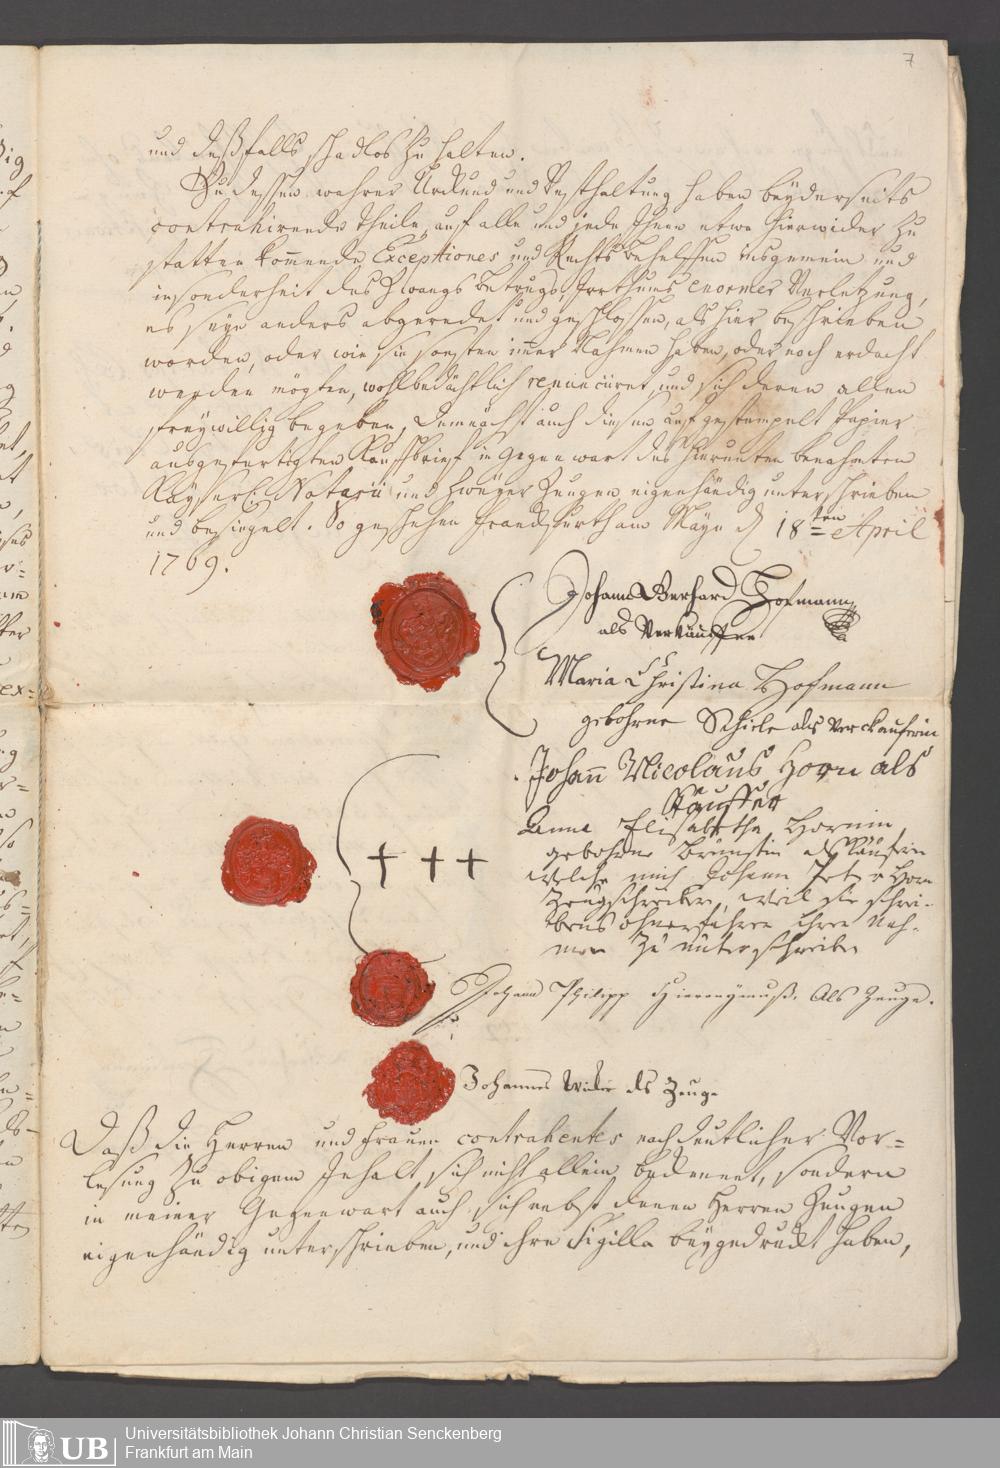 7
und deßfalls schadlos zu halten.
Zu dessen wahrer Urkund und Vesthaltung haben beyderseits
contrahirende Theile, auf alle und jede Ihnen etwa hierwider zu
statten kom̄ende Exceptiones und Rechts behelffen insgemein und
insonderheit des Zwangs Betrugs, Irrthums enormer Verletzung,
es seye anders abgeredet und geschlossen, als hier beschrieben
worden, oder wie sie sonsten im̄er Nahmen haben, oder noch erdacht
werden mögten, wohlbedächtlich renuncÿret, und sich deren allen
freywillig begeben, demnächst auch diesen auf gestempelt Papier
ausgefertigten Kauffbrief in Gegenwart des hierunten benahmten
Kayserl. Notarii und zweyer Zeugen eigenhändig unterschrieben
und besiegelt. So geschehen Franckfurth am Mayn d 18ten April
1769.
Johann Gerhard Hofmann
als Verkäuffer
Maria Christina Hofmann
gebohrne Schiele als Verckäuferin
Johann Nicolaus Horn als
Käuffer
Anna Elisabetha Hornin
gebohrne als Käuferin
welche mich Johann Peter Horn
weil sie schrei-
bens ohnerfahren ihren Nah-
men zu unterschreiben
+ + +
Johann Philipp Hieronymuß. Als Zeuge.
Johannes als Zeuge
Daß die Herren und Frauen contrahentes nach deutlicher Vor=
lesung zu obigem Inhalt, sich nicht allein bekennet, sondern
in meiner Gegenwart auch sich nebst denen Herren Zeugen
eigenhändig unterschrieben, und ihre Sigilla beygedruckt haben,
UB
Universitätsbibliothek Johann Christian Senckenberg
Frankfurt am Main